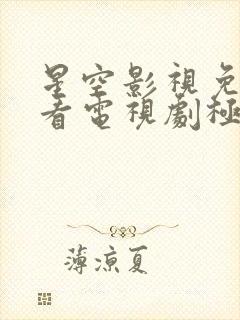 星空影視免
看電視劇極
薄涼夏